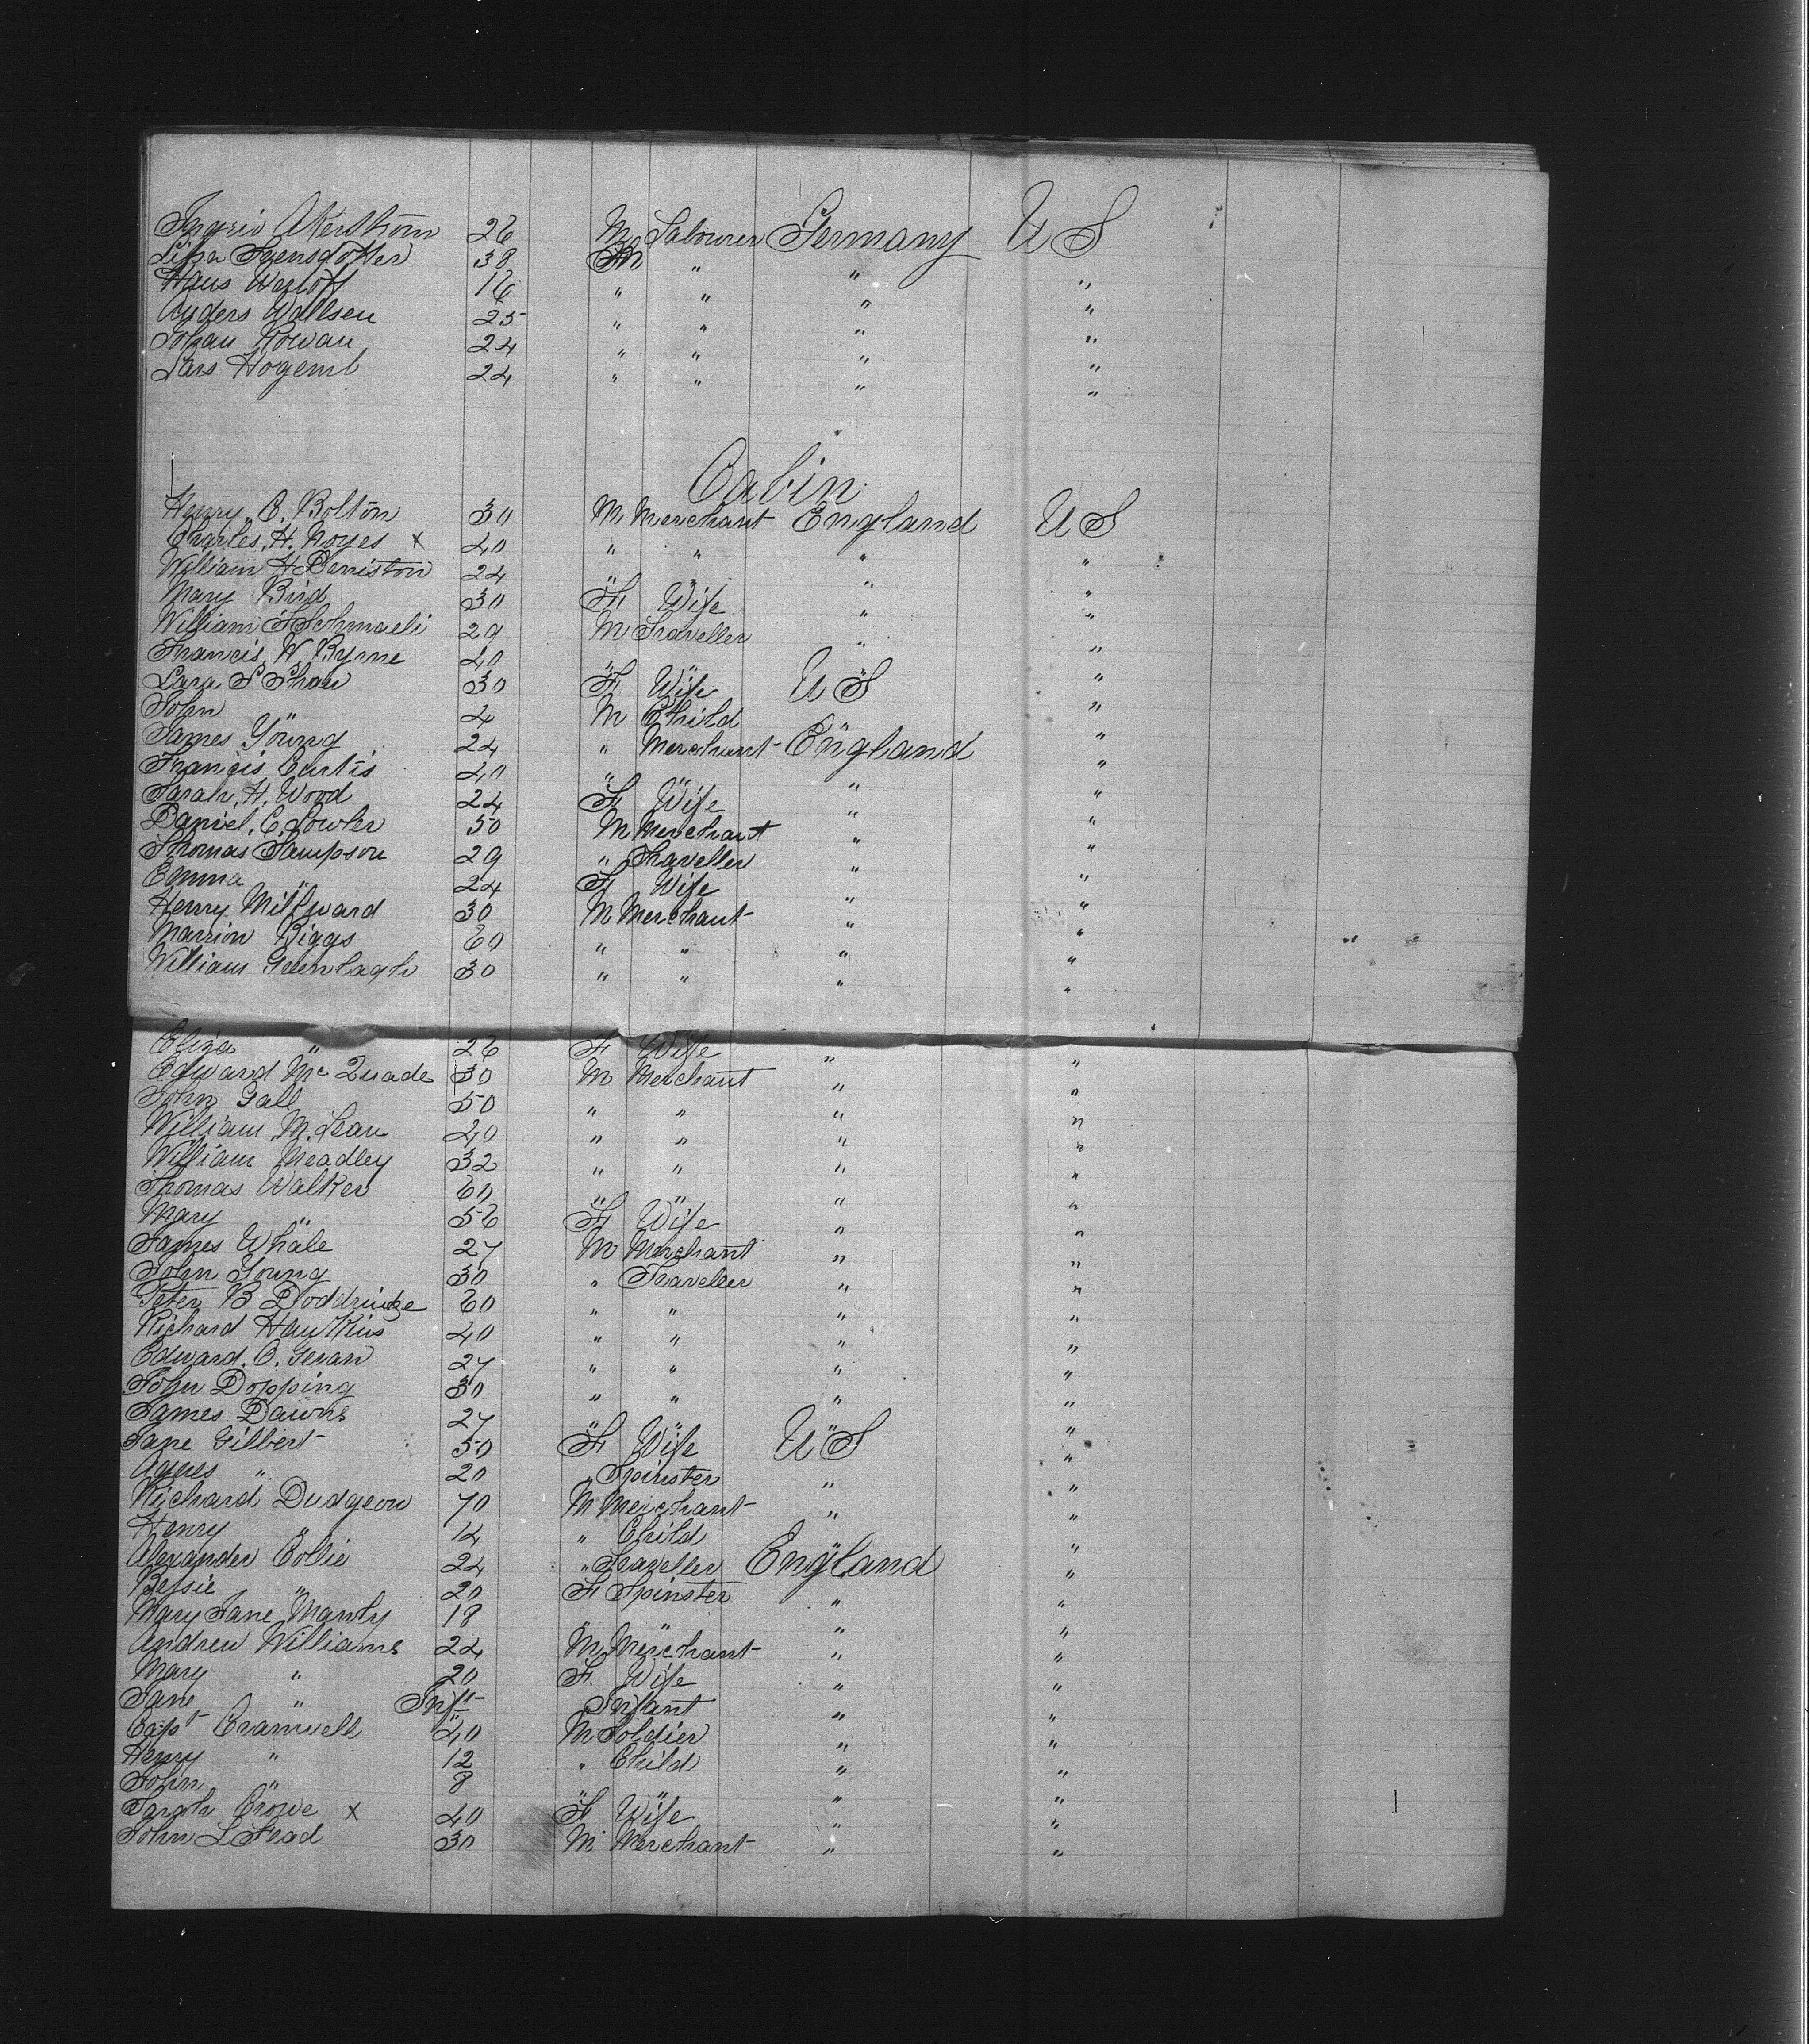 Akerstrom 26 M Labourer Germany U S
Svensdotter 38 M " " "
Hans 16 " " " "
Anders Wallsen 25 " " " "
Johan Rowan 24 " " " "
Lars Hogemb 24 " " " "
Cabin
Henry C. Bolton 30 M Merchant England U S
Charles, H. Noyes x 40 " " " "
William H Denniston 24 " " " "
Mary Bird 30 F Wife " "
William F Schmaeli 29 M Traveller " "
Francis W Byrne 40 " " " "
S Shaw 30 F Wife U S "
John " 4 M Child " "
James Young 24 " Merchant England "
Francis Curtis 40 " " " "
Sarah, H, Wood 24 F Wife " "
Daniel, C, Fowler 50 M Merchant " "
Thomas Sampson 29 " Traveller " "
Emma " 24 F Wife " "
Henry Millward 30 M Merchant " "
Marrion Biggs 60 " " " "
William Greenhagh 30 " " " "
Eliza " 26 F Wife " "
Edward Mc Quade 30 M Merchant " "
John Gall 50 " " " "
William, M, Lean 40 " " " "
William Meadley 32 " " " "
Thomas Walker 60 " " " "
Mary " 56 F Wife " "
James Whale 27 M Merchant " "
John Young 30 " Traveller " "
Peter B Doddridge 60 " " " "
Richard Hawkins 40 " " " "
Edward. C. Geran 27 " " " "
John Dopping 30 " " " "
James Dawns 27 " " " "
Jane Gilbert 50 F Wife U S "
Agnes " 20 " Spinster " "
Richard Dudgeon 70 M Merchant " "
Henry " 14 " Child " "
Alexander Collie 24 " Traveller England "
Bessie " 20 F Spinster " "
Mary Jane Manly 18 " " " "
Andrew Williams 24 M Merchant " "
Mary " 20 F Wife " "
Jane " Inft Infant " "
Capt Cramwell 40 M Soldier " "
Henry " 12 " Child " "
John " 8 " " " "
Sarah Crowe x 40 F Wife " "
John L Stead 30 M Merchant " "